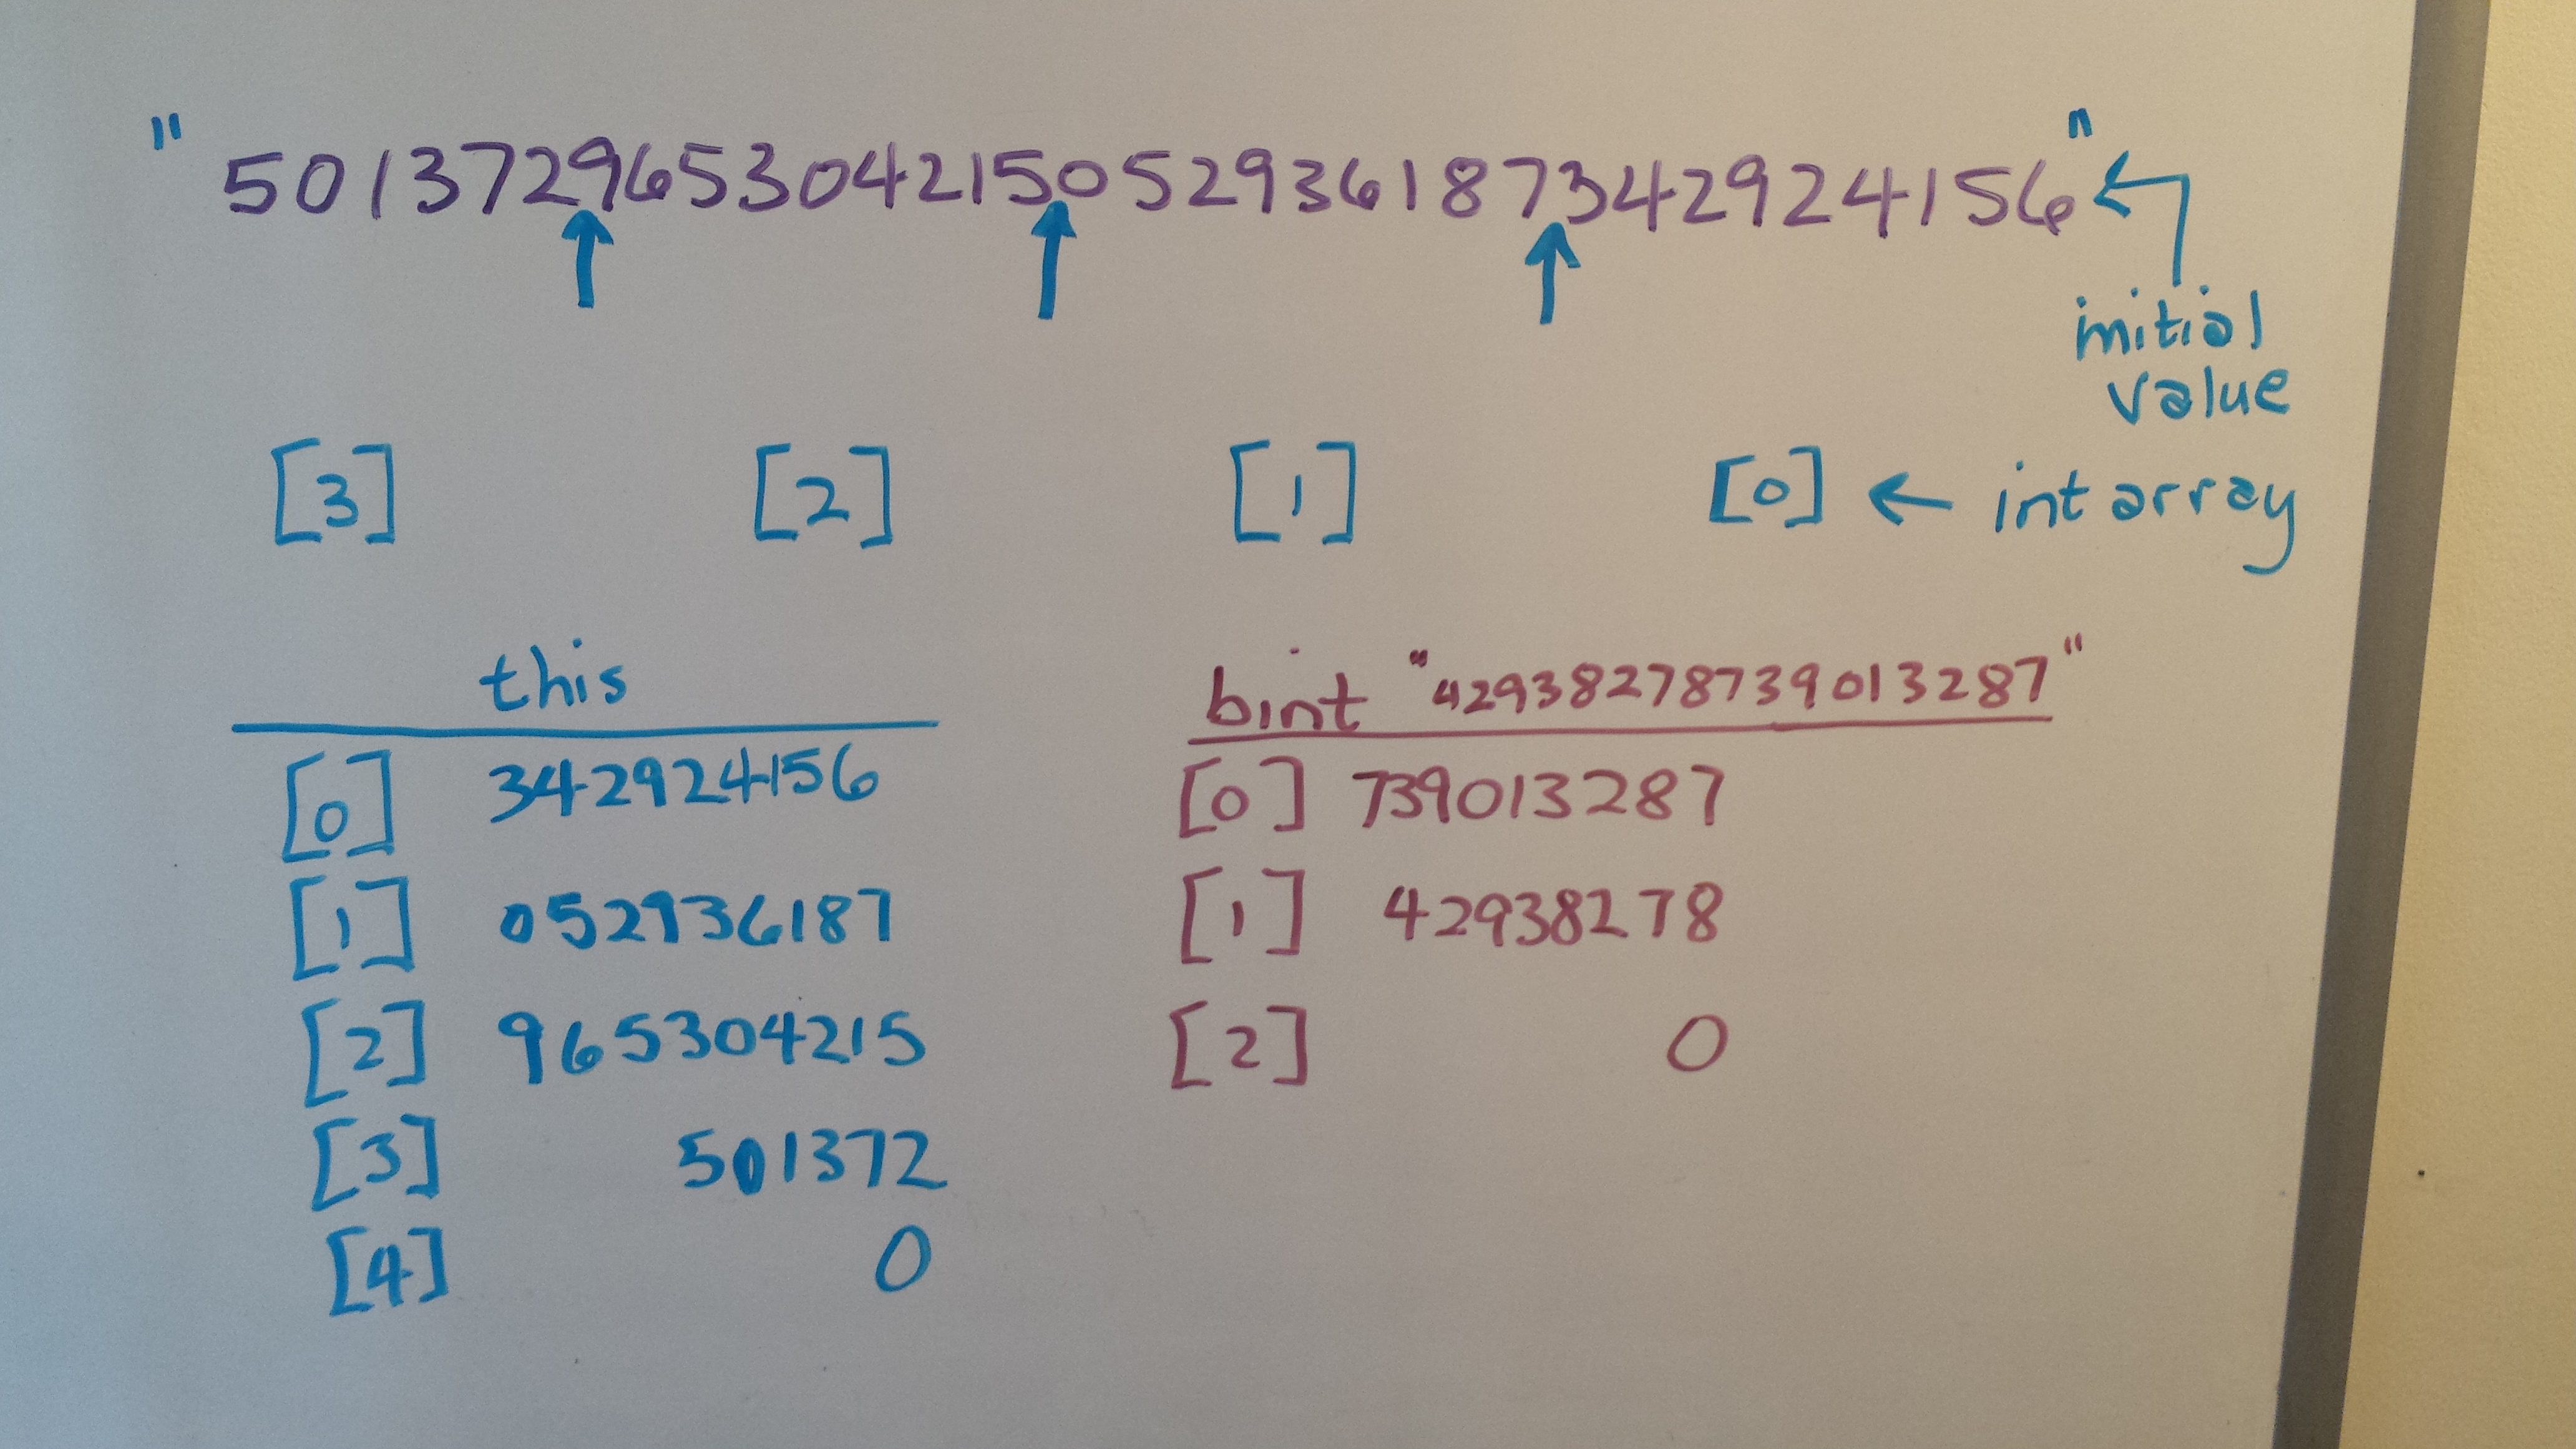 "501372965304215052936187342924156"
initial
value
[3] [2] [1] [0] ← int array
this
[0] 342924156
[1] 052936187
[2] 965304215
[3] 501372
[4] 0
bint "42938278739013287"
[0] 739013287
[1] 42938278
[2] 0